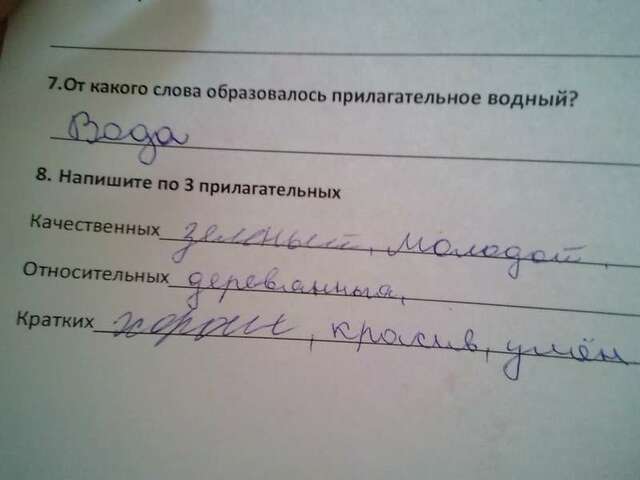 7.От какого слова образовалось прилагательное водный?
Вода
8. Напишите по 3 прилагательных
Качественных зеленый, молодой,
Относительных деревянный,
Кратких хорош, красив, умён